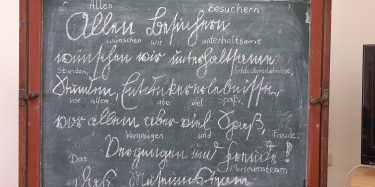 Allen Besuchern
Allen Besuchern
wünschen wir unterhaltsame
wünschen wir unterhaltsame
Stunden, Entdeckererlebnisse,
Stunden, Entdeckererlebnisse,
vor allem aber viel Spaß,
vor allem aber viel Spaß,
Vergnügen und Freude
Vergnügen und Freude!
Das Museumsteam
Das Museums-Team